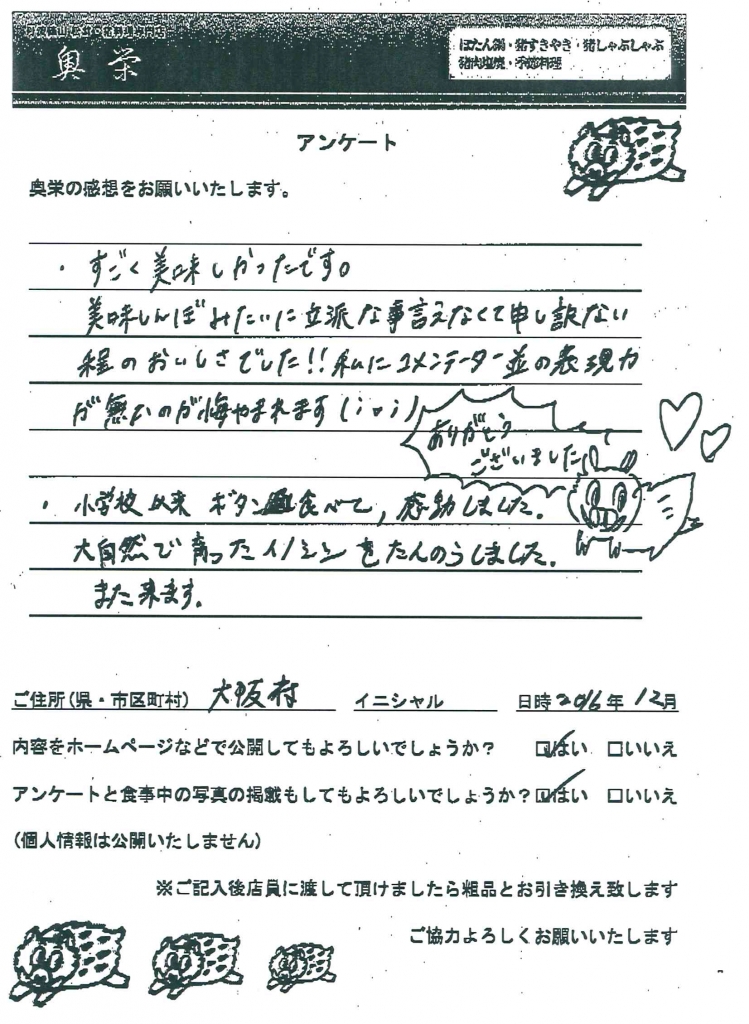 奥栄
ぼたん鍋・猪すきやき・猪しゃぶしゃぶ
猪肉塩焼・季節料理
アンケート
奥栄の感想をお願いいたします。
・すごく美味しかったです。
美味しんぼみたいに立派な事言えなくて申し訳ない
程のおいしさでした!!私にコメンテーター並の表現力
が無いのが悔やまれます(;o;)
ありがとう
ございました
・小学校以来 ボタン食べて,感動しました.
大自然で育ったイノシシをたんのうしました.
また来ます.
ご住所(県・市区町村) 大阪府 イニシャル 日時2016年 12月
内容をホームページなどで公開してもよろしいでしょうか? ☑はい □いいえ
アンケートと食事中の写真の掲載もしてもよろしいでしょうか?☑はい □いいえ
(個人情報は公開いたしません)
※ご記入後店員に渡して頂けましたら粗品とお引き換え致します
ご協力よろしくお願いいたします